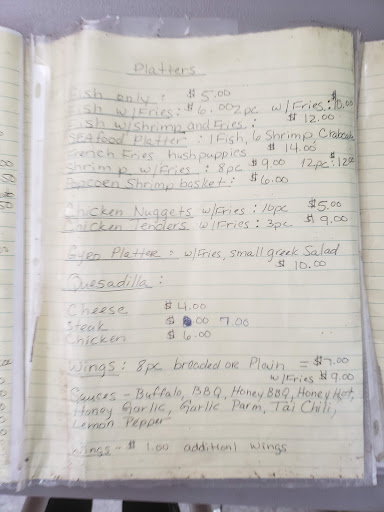 Platters
Fish only : $5.00
Fish w/Fries : $6.00 2pc w/Fries : $10.00
Fish w/shrimp and Fries : $12.00
SEAfood Platter : 1Fish, 6 Shrimp, Crabcake
French Fries, hushpuppies $14.00
Shrimp w/Fries : 8pc $9.00 12pc : $12
Popcorn Shrimp basket : $6.00
Chicken Nuggets w/Fries : 10pc $5.00
Chicken Tenders w/Fries : 3pc $9.00
Gyro Platter = w/Fries, small greek Salad
$10.00
Quesadilla :
Cheese $4.00
Steak $ .00 7.00
Chicken $6.00
Wings : 8pc breaded or Plain = $7.00
w/Fries $9.00
Sauces - Buffalo, BBQ, Honey BBQ, Honey Hot,
Honey Garlic, Garlic Parm, Tai Chili,
Lemon Pepper
Wings - $1.00 additionl wings